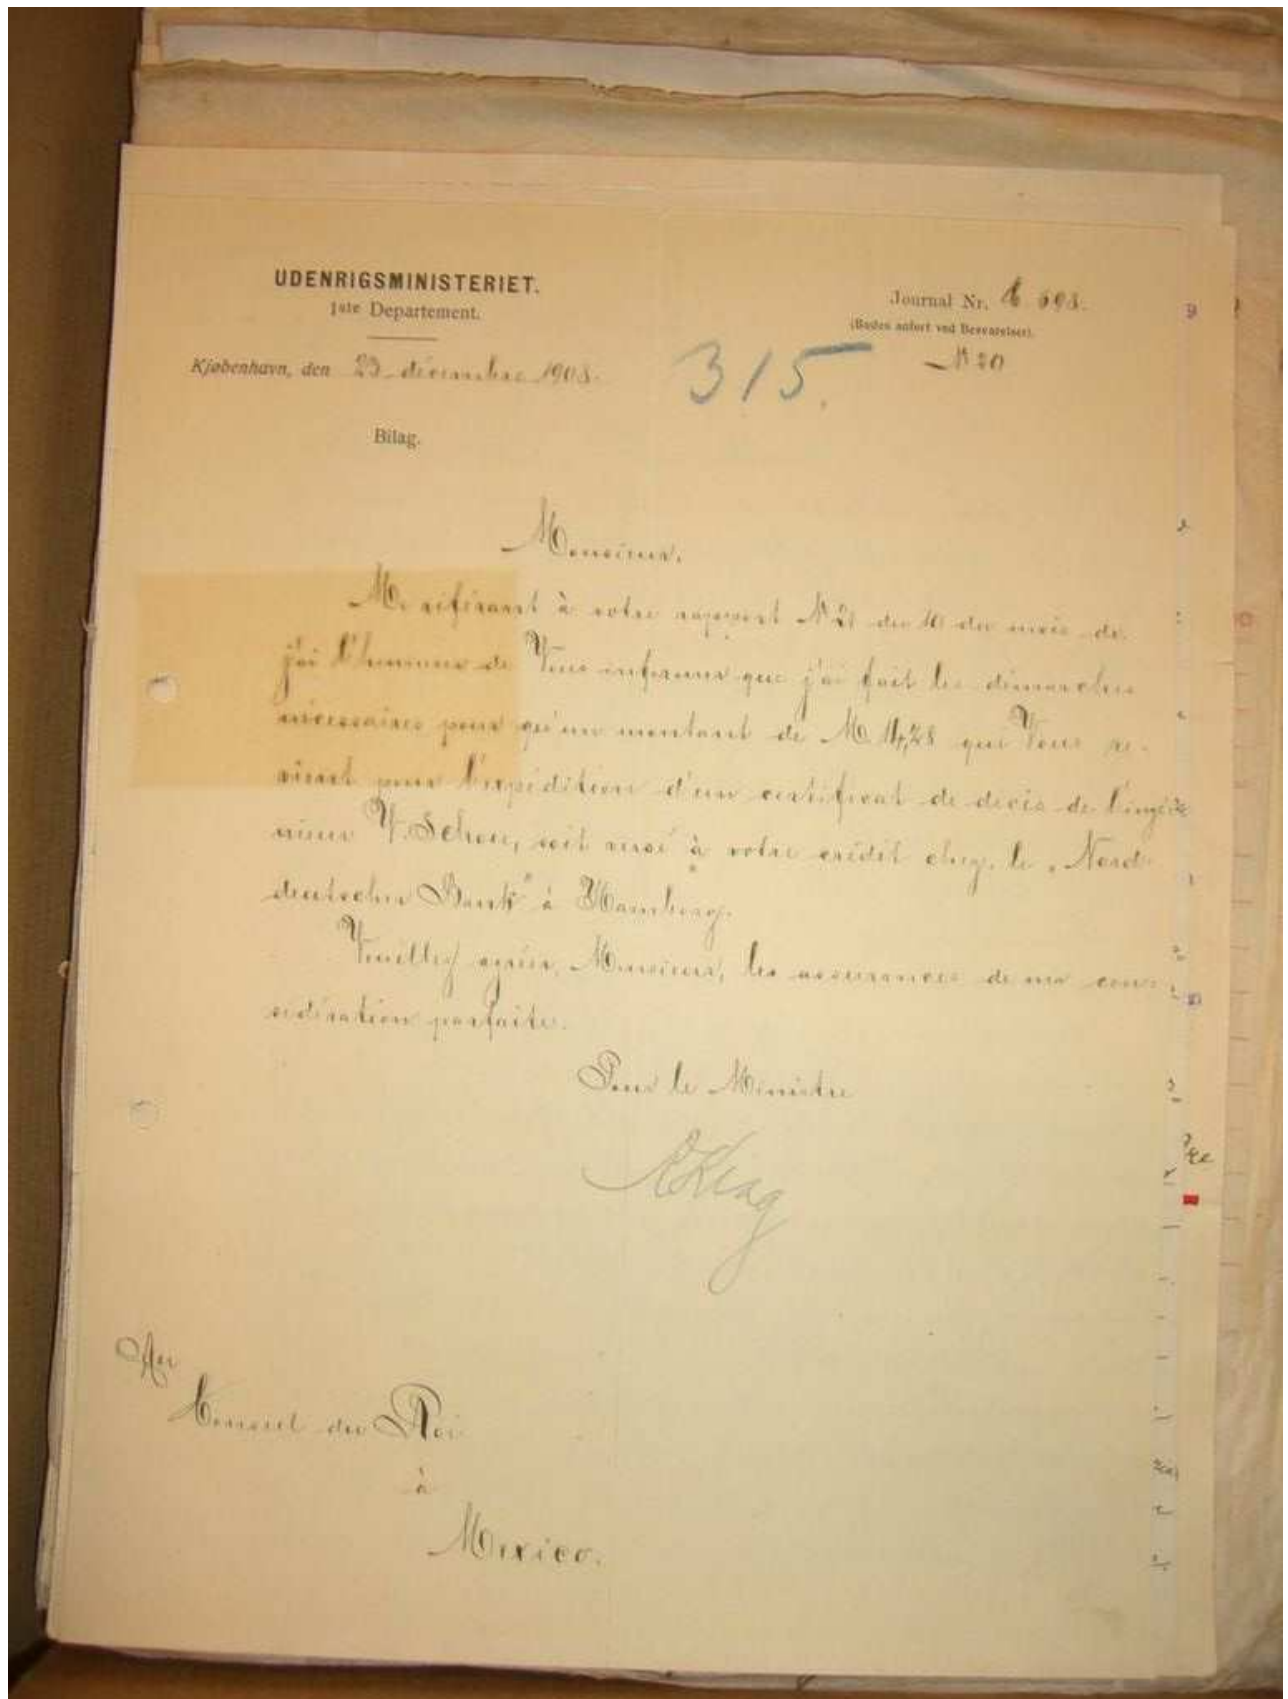 UDENRIGSMINISTERIET.
1ste Departement.
Journal Nr.
(Bedes anført ved Besvarelser).
Kjøbenhavn, den 23 décembre 1908.
315.
№ 20
Bilag.
Monsieur,
Me référant à votre rapport № 21 du 10 du mois de
j'ai l'honneur de Vous informer que j'ai fait les démarches
nécessaires pour qu'un montant de M. qui Vous re-
vient pour l'expédition d'un certificat de décès de l'ingé-
nieur V. Schou, soit versé à votre crédit chez le „Nord-
deutscher Bank" à Hamburg.
Veuillez agréer, Monsieur, les assurances de ma con-
sidération parfaite.
Pour le Ministre
Au
Consul du Roi
à
Mexico.